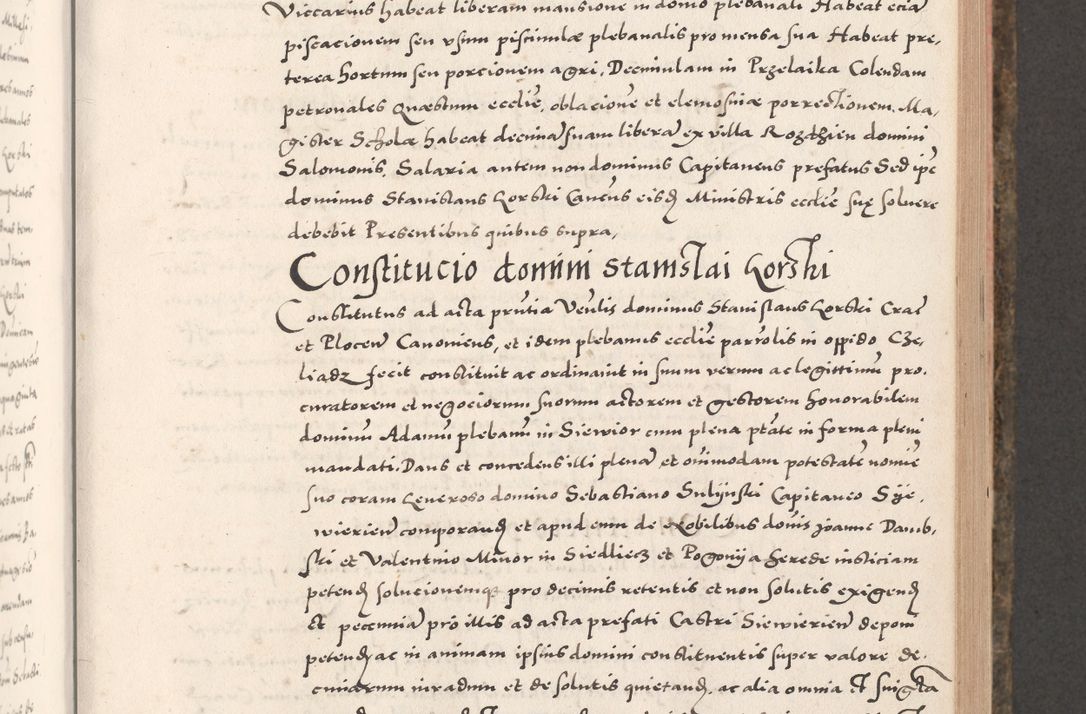 Viccarius habeat liberam mansione in domo plebanali Habeat ecia
piscacionem seu usum piscinulæ plebanalis pro mensa sua Habeat pre,
terea hortum seu porcionem agri, Decimulam in Przelaika Colendam
petronales Quæstum ecclie, oblacione et elemosinæ porrectionem, Ma,
gister Scholæ habeat decima suam libera ex villa Rozdzien domini
Salomonis, Salaria autem non dominus Capitaneus prefatus Sed ipse
dominus Stanislaus Gorski Cancus eisd Ministris ecclie suę soluere
debebit Presentibus quibus supra,
Constitucio domini Stanislai Gorski
Constitutus ad acta prntia Venlis dominus Stanislaus Gorski Crac
et Plocen Canonicus, et idem plebanus ecclie parrolis in oppido Cze,
liadz fecit constituit ac ordinauit in suum verum ac legittimu pro,
curatorem et negociorum suorum actorem et gestorem honorabilem
dominu Adamu plebanu in Siewior cum plena ptate in forma pleni
mandati. Dans et concedens illi plena et omimodam potestate nomie
suo coram Generoso domino Sebastiano Sulynski Capitaneo Sye,
wierien comporand et apud eum de Nobilibus dois Joanne Damb,
ski et Valentino Minor in Siedliecz et Pogonya herede iusticiam
petend solucionemque pro decimis retentis et non solutis exigend
Et pecunia pro illis ad acta prefati Castri Siewierien deponi
petend ac in animam ipsius domini constituentis super valore de,
cimarum iurandum et de solutis quietand, ac alia omnia Et singla